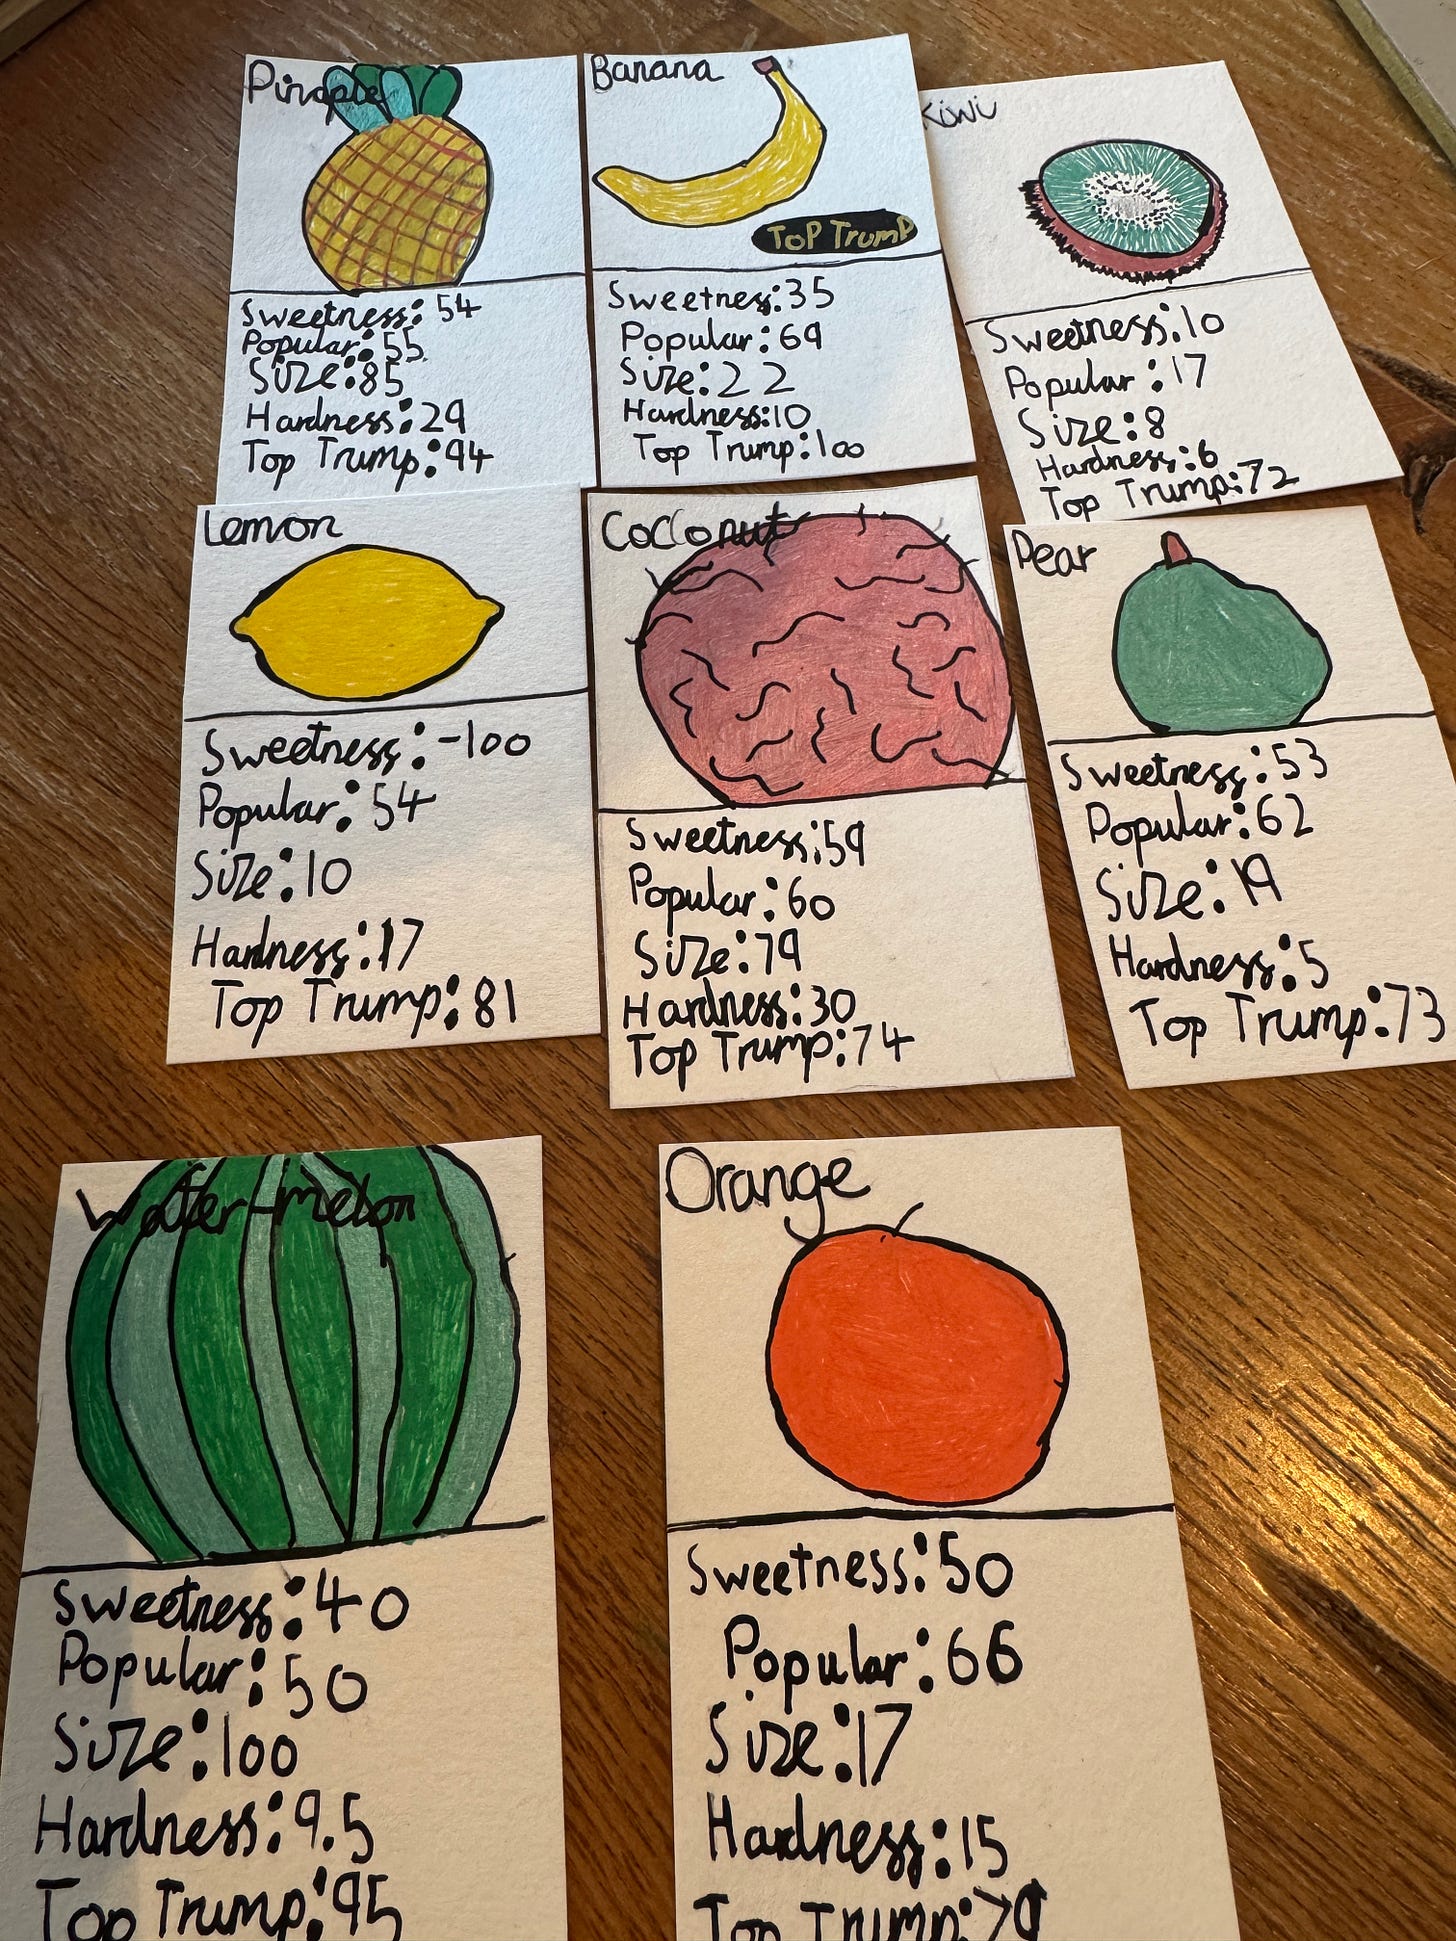 Pinaple
Sweetness: 54
Popular: 55
Size: 85
Hardness: 29
Top Trump: 94
Banana
Top Trump
Sweetness: 35
Popular: 69
Size: 22
Hardness: 10
Top Trump: 100
Kiwi
Sweetness: 10
Popular: 17
Size: 8
Hardness: 6
Top Trump: 72
Lemon
Sweetness: -100
Popular: 54
Size: 10
Hardness: 17
Top Trump: 81
Cocconut
Sweetness: 59
Popular: 60
Size: 79
Hardness: 30
Top Trump: 74
Pear
Sweetness: 53
Popular: 62
Size: 19
Hardness: 5
Top Trump: 73
Water-melon
Sweetness: 40
Popular: 50
Size: 100
Hardness: 9.5
Top Trump: 95
Orange
Sweetness: 50
Popular: 66
Size: 17
Hardness: 15
Top Trump: 79